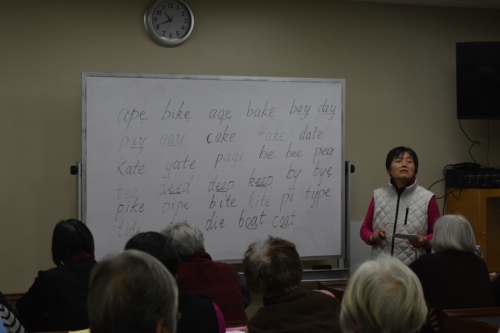 ape bike age bake bay day
pay gay cake take date
Kate gate page be bee pea
tea deed deep keep by bye
pike pipe bite kite pi type
die boat coat